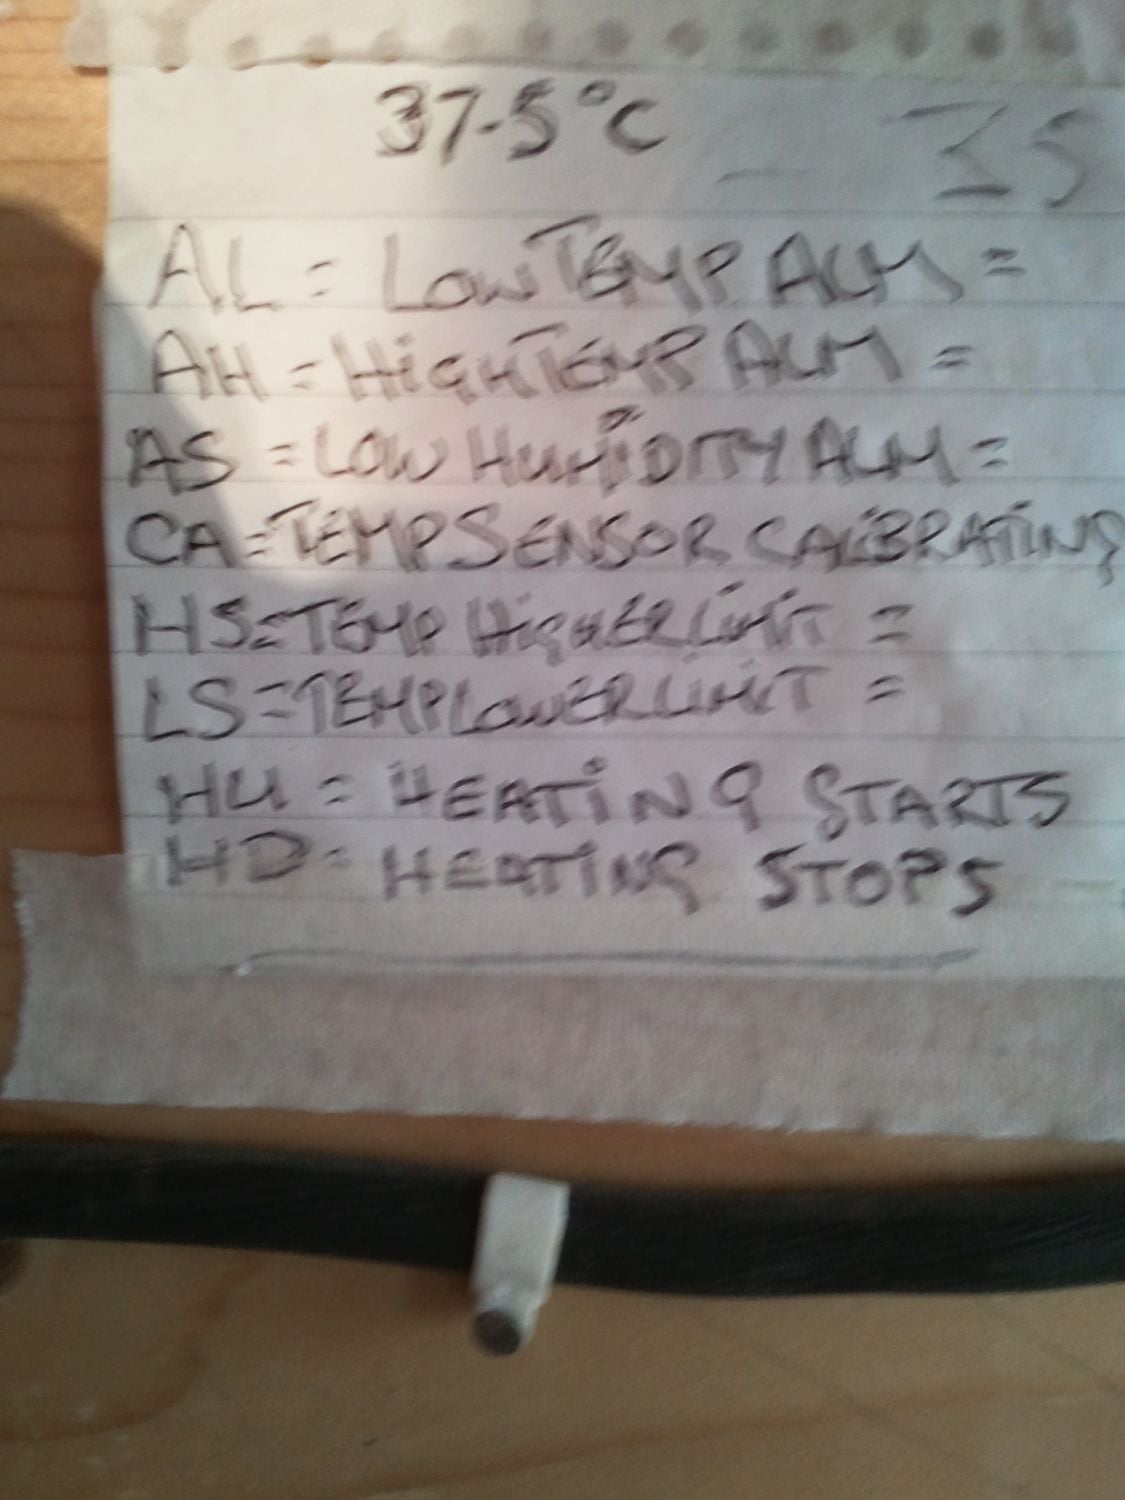 37.5°C - 35
AL = LOW TEMP ALM =
AH = HIGH TEMP ALM =
AS = LOW HUMIDITY ALM =
CA = TEMP SENSOR CALIBRATING
HS = TEMP HIGHER LIMIT =
LS = TEMP LOWER LIMIT =
HU = HEATING STARTS
HD = HEATING STOPS